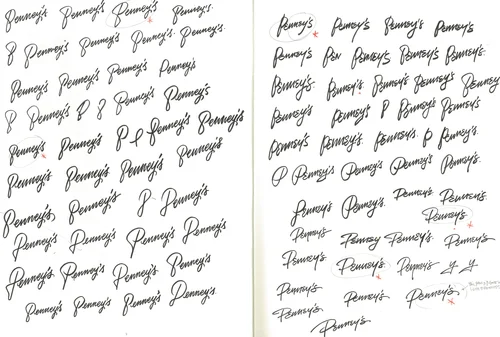 Penney's Penney's Penney's Penney's
P Penney's Penney's Penney's Penney's
Penney's Penney's Penney's Penney's
P Penney's P P Penney's Penney's
Penney's Penney's P P Penney's Penney's
Penney's Penney's Penney's Penney's
Penney's Penney's P Penney's
Penney's Penney's Penney's Penney's
Penney's Penney's Penney's Penney's
Penney's Penney's Penney's Penney's
Penney's Penney's Penney's Penney's
Penney's Pen Penney's Penney's Penney's
Penney's Penney's Penney's Penney's Penney
Penney's Penney's P Penney's Penney's
Penney's Penney's Penney's P Penney's
P Penney's Penney's Penney's Penney's
Penney's Penney's Penney's Penney's
Penney's
Penney's Penney Penney's Penney's
Penney's Penney's Penney's y y
Penney's Penney's Penney's
Penney's
Penney's